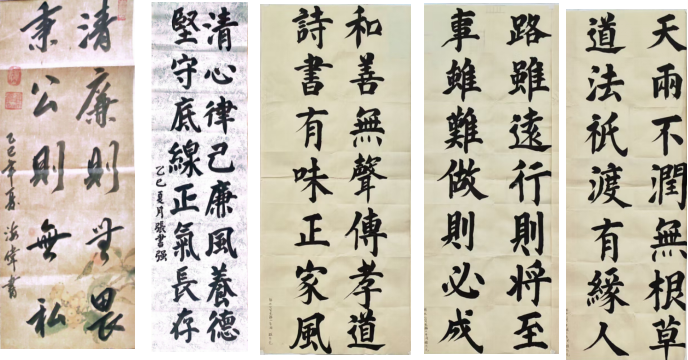 清廉則無畏
秉公則無私
乙巳年夏海偉書
清心律己廉風養德
堅守底線正氣長存
乙巳夏月張書强
和善無聲傳孝道
詩書有味正家風
路雖遠行則将至
事雖難做則必成
天雨不潤無根草
道法祇渡有緣人